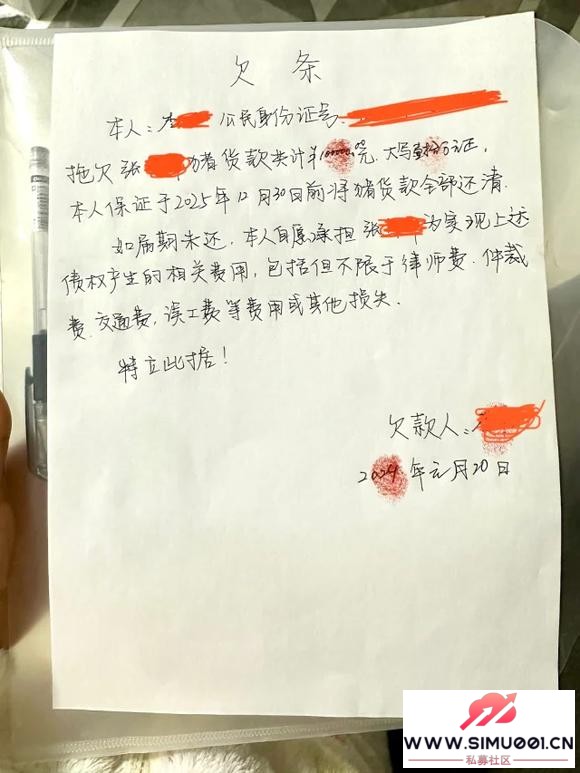 欠条
本人:李 公民身份证号
拖欠张 猪货款共计¥100000.00元,大写壹拾万元正,
本人保证于2025年12月30日前将猪货款全部还清.
如届期未还,本人自愿承担张 为实现上述
债权产生的相关费用,包括但不限于律师费.仲裁
费.交通费,误工费等费用或其他损失.
特立此据!
欠款人:李
2024年元月20日
WWW.SIMU001.CN
私募社区